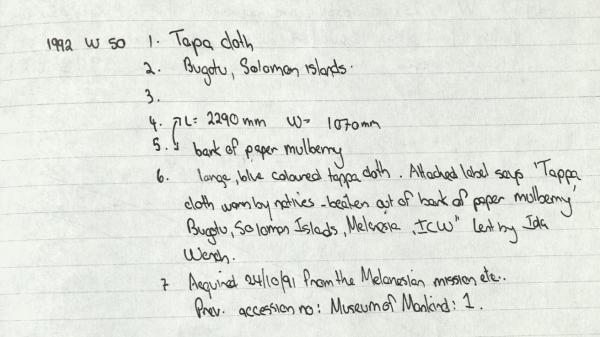 1992 W 50 1. Tapa cloth
2. Bugotu, Solomon Islands.
3.
4. L= 2290mm W= 1070mm
5. bark of paper mulberry
6. large, blue coloured tappa cloth. Attached label says 'Tappa
cloth worn by natives - beaten out of bark of paper mulberry'
Bugotu, Solomon Islads, Melanesia, ICW" Lent by Ida
Wench.
7 Acquired 24/10/91 from the Melanesian mission etc..
Prev. accession no: Museum of Mankind: 1.